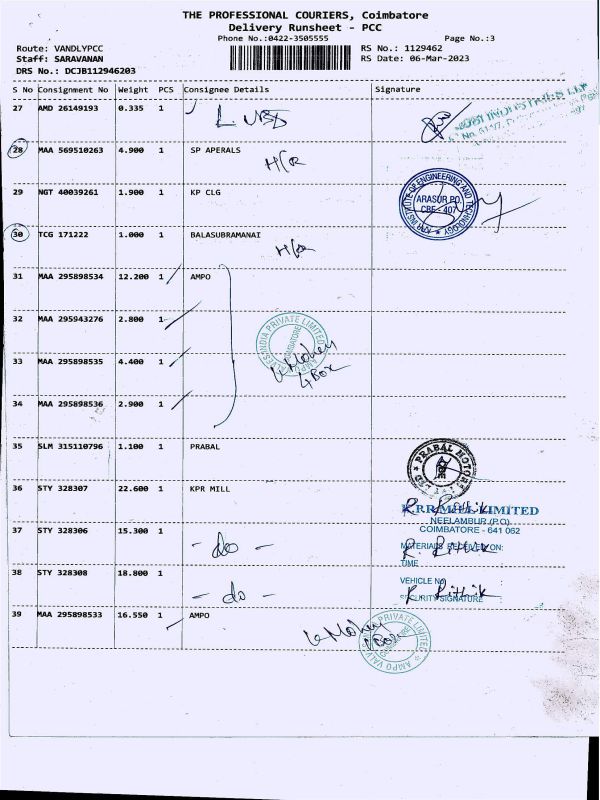 THE PROFESSIONAL COURIERS, Coimbatore
Delivery Runsheet - PCC
Phone No.:0422-3505555 Page No.:3
Route: VANDLYPCC RS No.: 1129462
Staff: SARAVANAN RS Date: 06-Mar-2023
DRS No.: DCJB112946203
S No Consignment No Weight PCS Consignee Details Signature
27 AMD 26149193 0.335 1
28 MAA 569510263 4.900 1 SP APERALS
29 NGT 40039261 1.900 1 KP CLG
INSTITUTE OF ENGINEERING AND TECHNOLOGY
ARASUR PO.
CBE - 407
30 TCG 171222 1.000 1 BALASUBRAMANAI
31 MAA 295898534 12.200 1 AMPO
32 MAA 295943276 2.800 1
INDIA PRIVATE LIMITED
COIMBATORE
33 MAA 295898535 4.400 1
4 Box
34 MAA 295898536 2.900 1
35 SLM 315110796 1.100 1 PRABAL
PRABAL MOTORS
36 STY 328307 22.600 1 KPR MILL
MILL LIMITED
NEELAMBUR (P.O)
COIMBATORE - 641 062
37 STY 328306 15.300 1 - do -
MATERIALS RECEIVED ON:
R. Rithik
TIME
38 STY 328308 18.800 1 - do -
VEHICLE NO
R. Rithik
SECURITY SIGNATURE
39 MAA 295898533 16.550 1 AMPO
PRIVATE LIMITED
AMPO VALVES